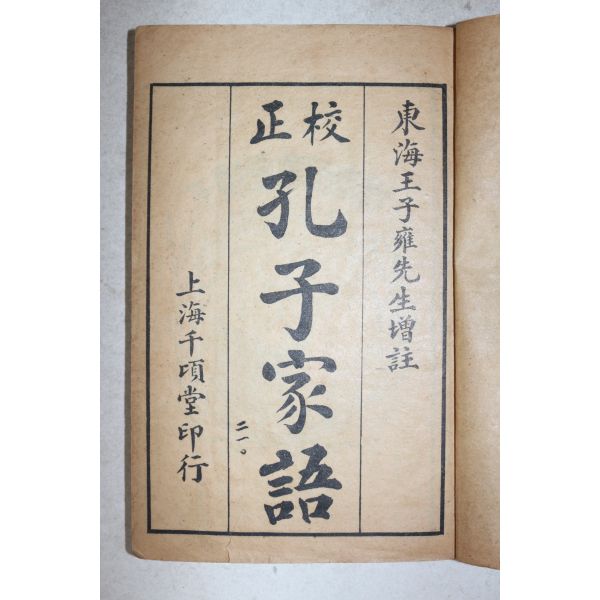 東海王子雍先生增註
校正
孔子家語
二一。
上海千頃堂印行